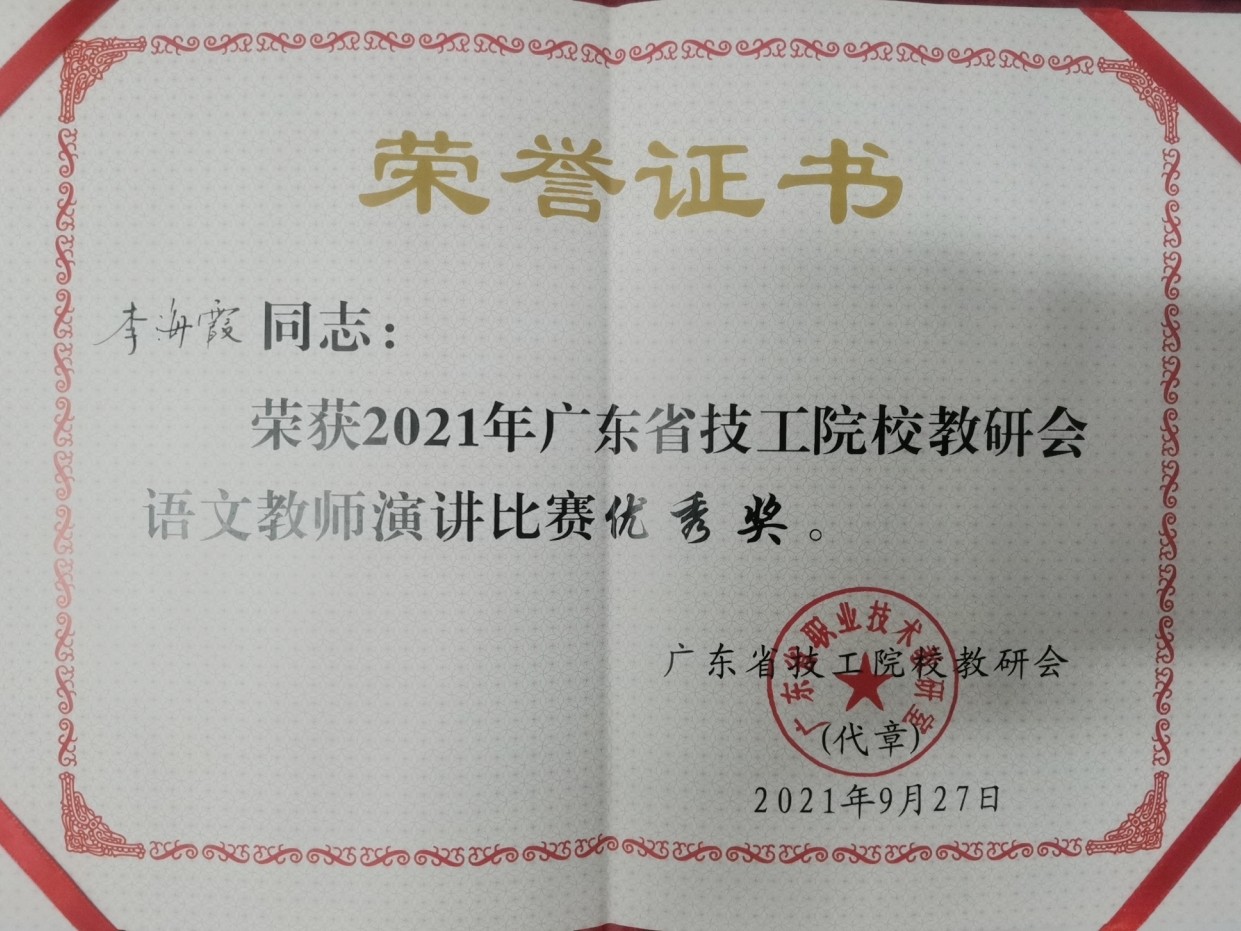 荣誉证书
李海霞同志：
荣获2021年广东省技工院校教研会
语文教师演讲比赛优秀奖。
广东省技工院校教研会
广东省职业技术教研室
(代章)
2021年9月27日